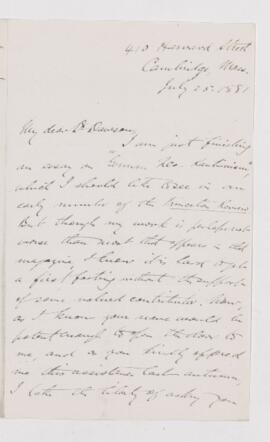 410 Harvard Street
Cambridge Mass.
July 25. 1881
My dear Dr Dawson,
I am just finishing
an essay on "German Neo-Kantianism",
which I should like to see in an
early number of the Princeton Review
But though my work is perhaps not
worse than most that appears in that
magazine I know it is hard to get
a first footing without the support
of some valued contributor. Now,
as I know your name would be
potent enough to open the door to
me, and as you kindly offered
me this assistance last autumn,
I take the liberty of asking you